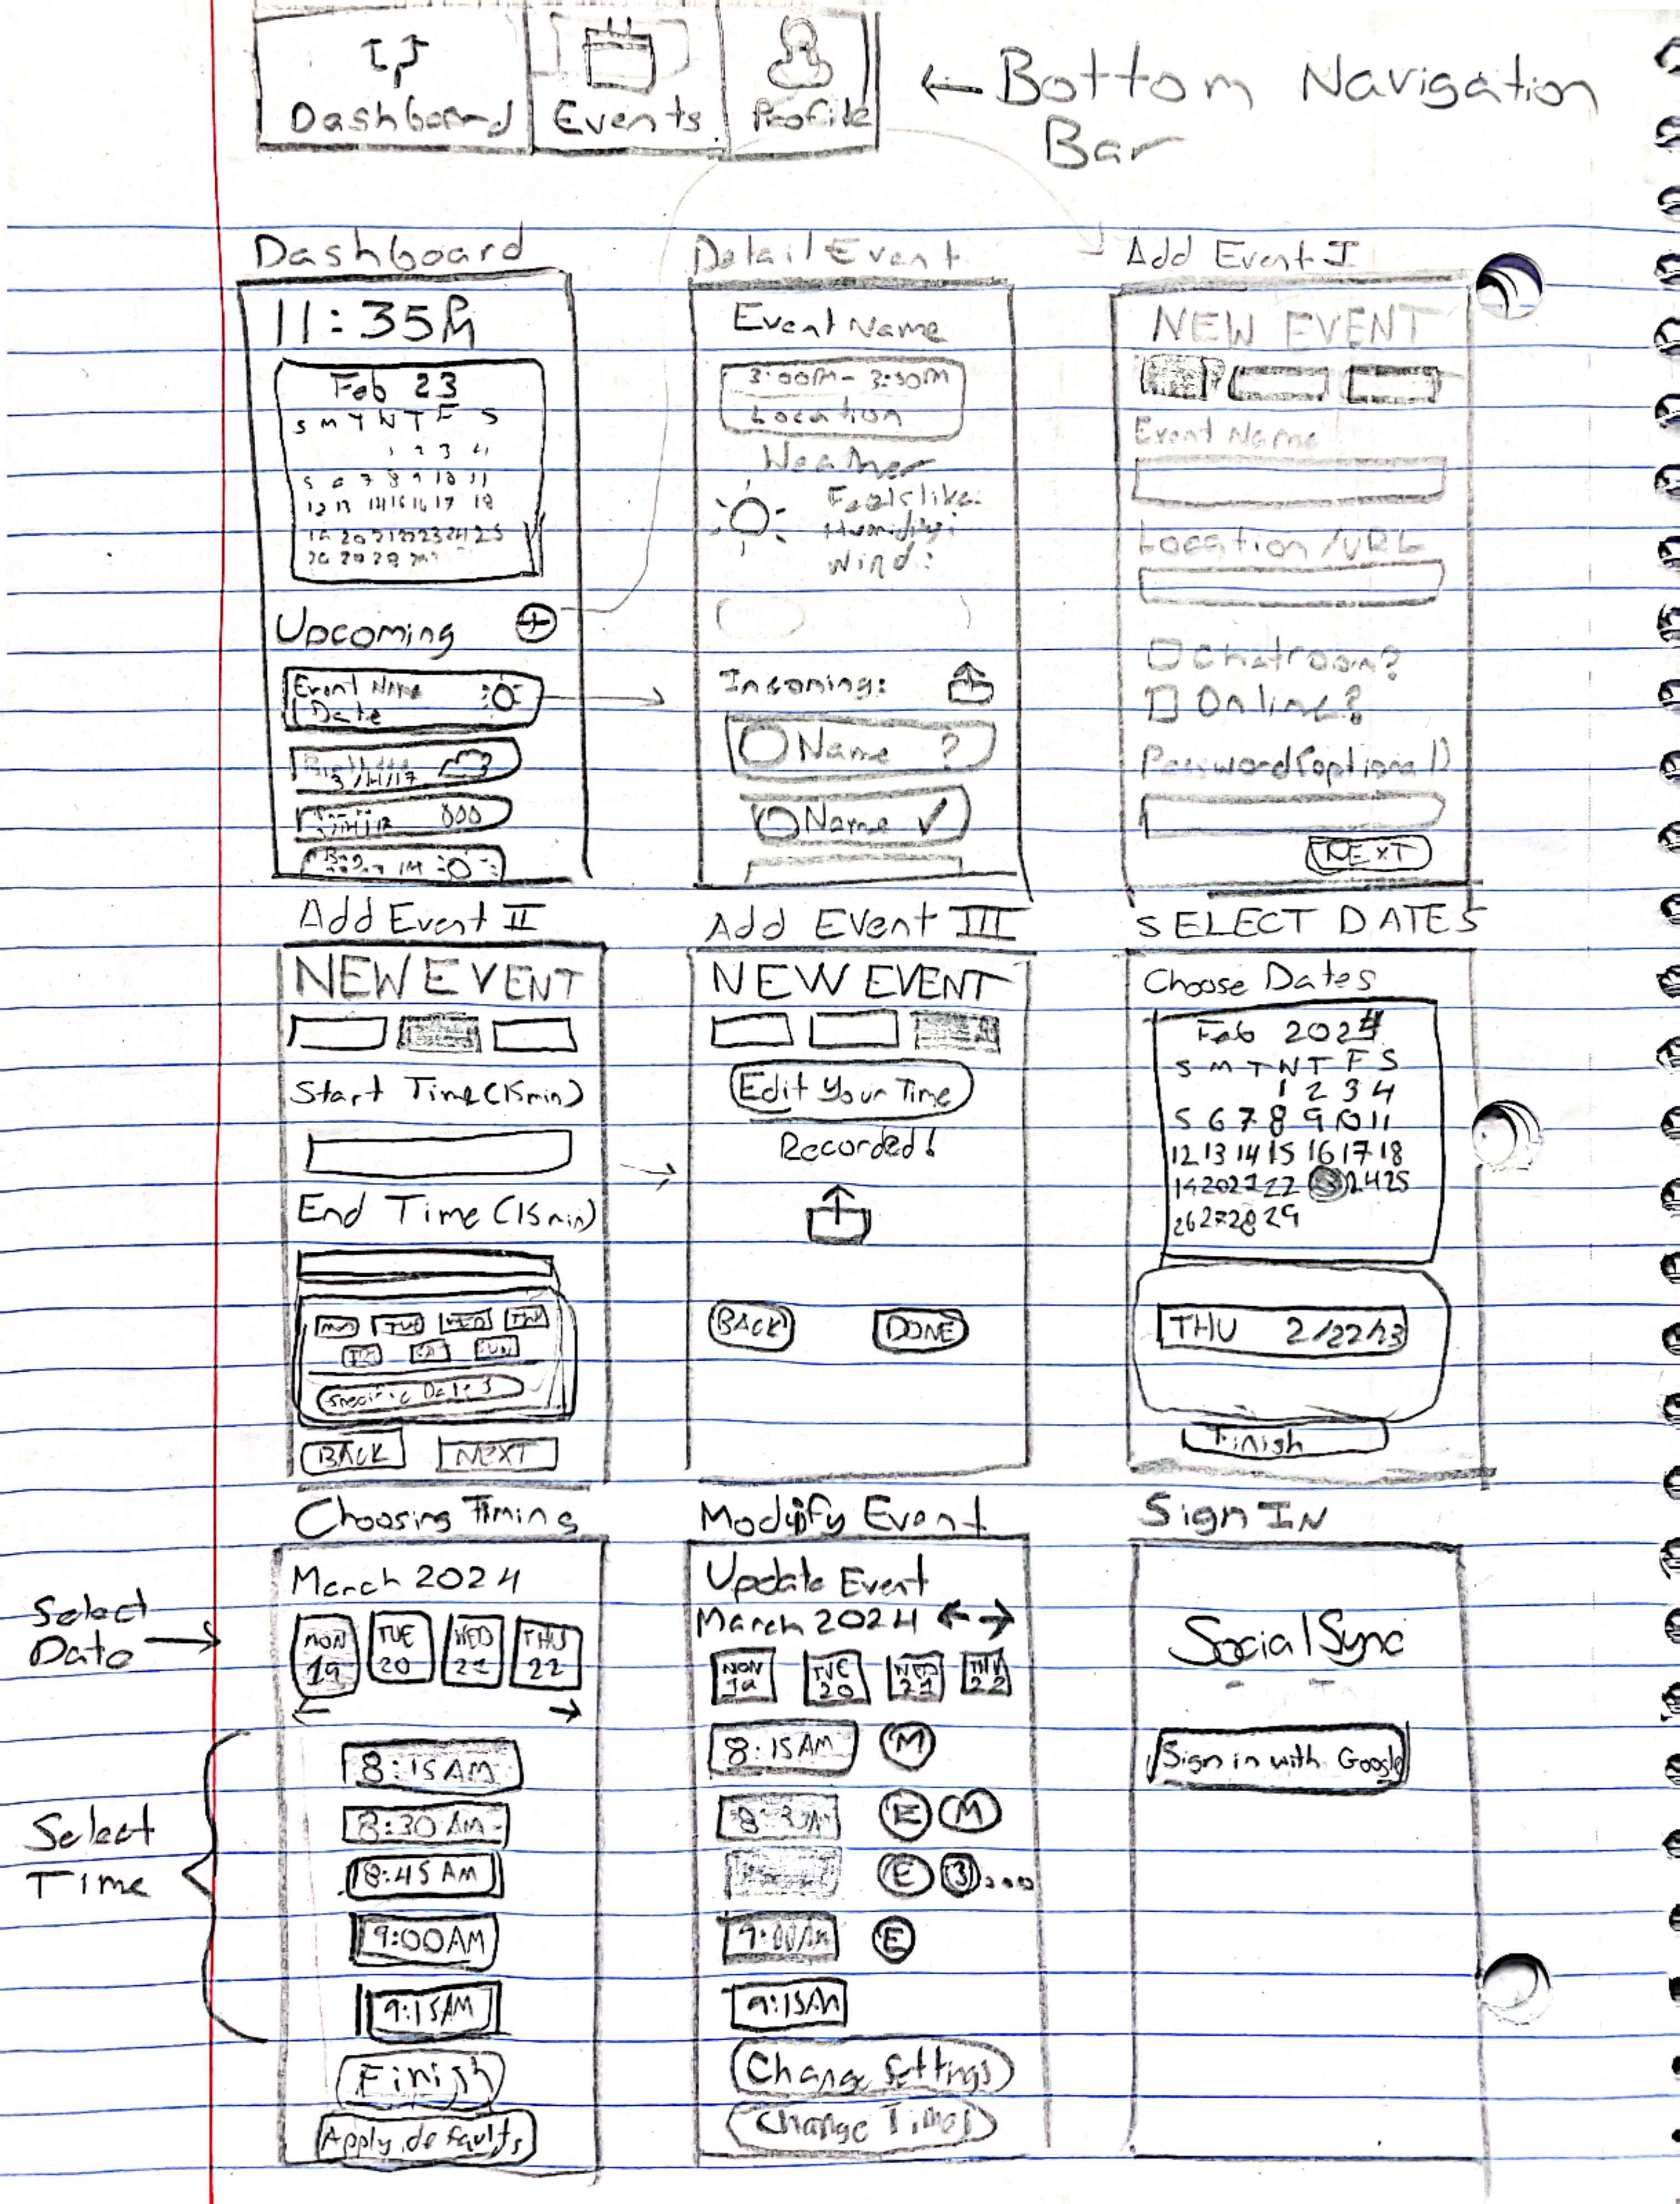 Dashboard
Events
Profile
← Bottom Navigation
Bar
Dashboard
11:35PM
Feb 23
S M T W T F S
1 2 3 4
5 6 7 8 9 10 11
12 13 14 15 16 17 18
19 20 21 22 23 24 25
Upcoming
Event Name
Date
Detail Event
Event Name
3:00PM - 3:30PM
Location
Weather
Feels like:
Humidity:
Wind:
Incoming:
Name ?
Name ✓
Add Event I
NEW EVENT
Event Name
Location/URL
Chatroom?
Online?
Password(optional)
NEXT
Add Event II
NEW EVENT
Start Time(15min)
End Time (15min)
MON TUE WED THU
FRI SAT SUN
Specific Dates
BACK
NEXT
Add Event III
NEW EVENT
Edit Your Time
Recorded!
BACK
DONE
SELECT DATES
Choose Dates
Feb 2024
S M T W T F S
1 2 3 4
5 6 7 8 9 10 11
12 13 14 15 16 17 18
19 20 21 22 24 25
26 27 28 29
THU 2/22/23
Finish
Select
Date →
Select
Time
Choosing Timing
March 2024
MON
19
TUE
20
WED
21
THU
22
← →
8:15AM
8:30 AM
8:45 AM
9:00AM
9:15AM
Finish
Apply defaults
Modify Event
Update Event
March 2024 ← →
MON
19
TUE
20
WED
21
THU
22
8:15AM M
8:30AM E M
E 3...
9:00AM E
9:15AM
Change Settings
Change Times
Sign IN
SocialSync
Sign in with Google